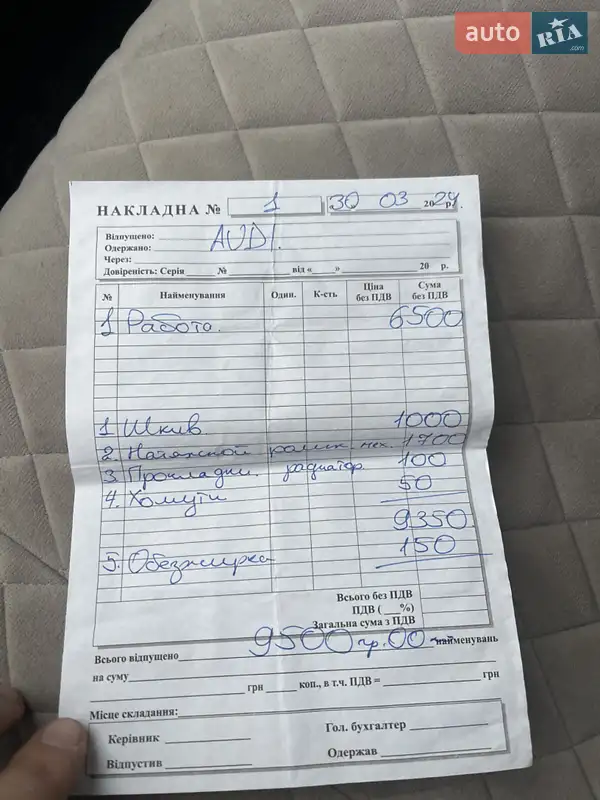 auto RIA .com
НАКЛАДНА № 1 «30» 03 2024 р.
Відпущено:
Одержано: AUDI.
Через:
Довіреність: Серія № від « » 20 р.
№ Найменування Один. К-сть Ціна без ПДВ Сума без ПДВ
1 Работа. 6500
1 Шкив 1000
2. Натяжной ролик мех. 1700
3. Прокладки радиатор. 100
4. Хомути 50
9350
5. Обезжирка 150
Всього без ПДВ
ПДВ ( %)
Загальна сума з ПДВ
Всього відпущено 9500 гр. 00 найменувань
на суму
грн коп., в т.ч. ПДВ = грн
Місце складання:
Керівник Гол. бухгалтер
Відпустив Одержав